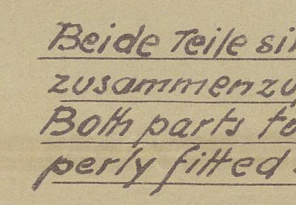 Beide Teile si
zusammenzu
Both parts to
perly fitted